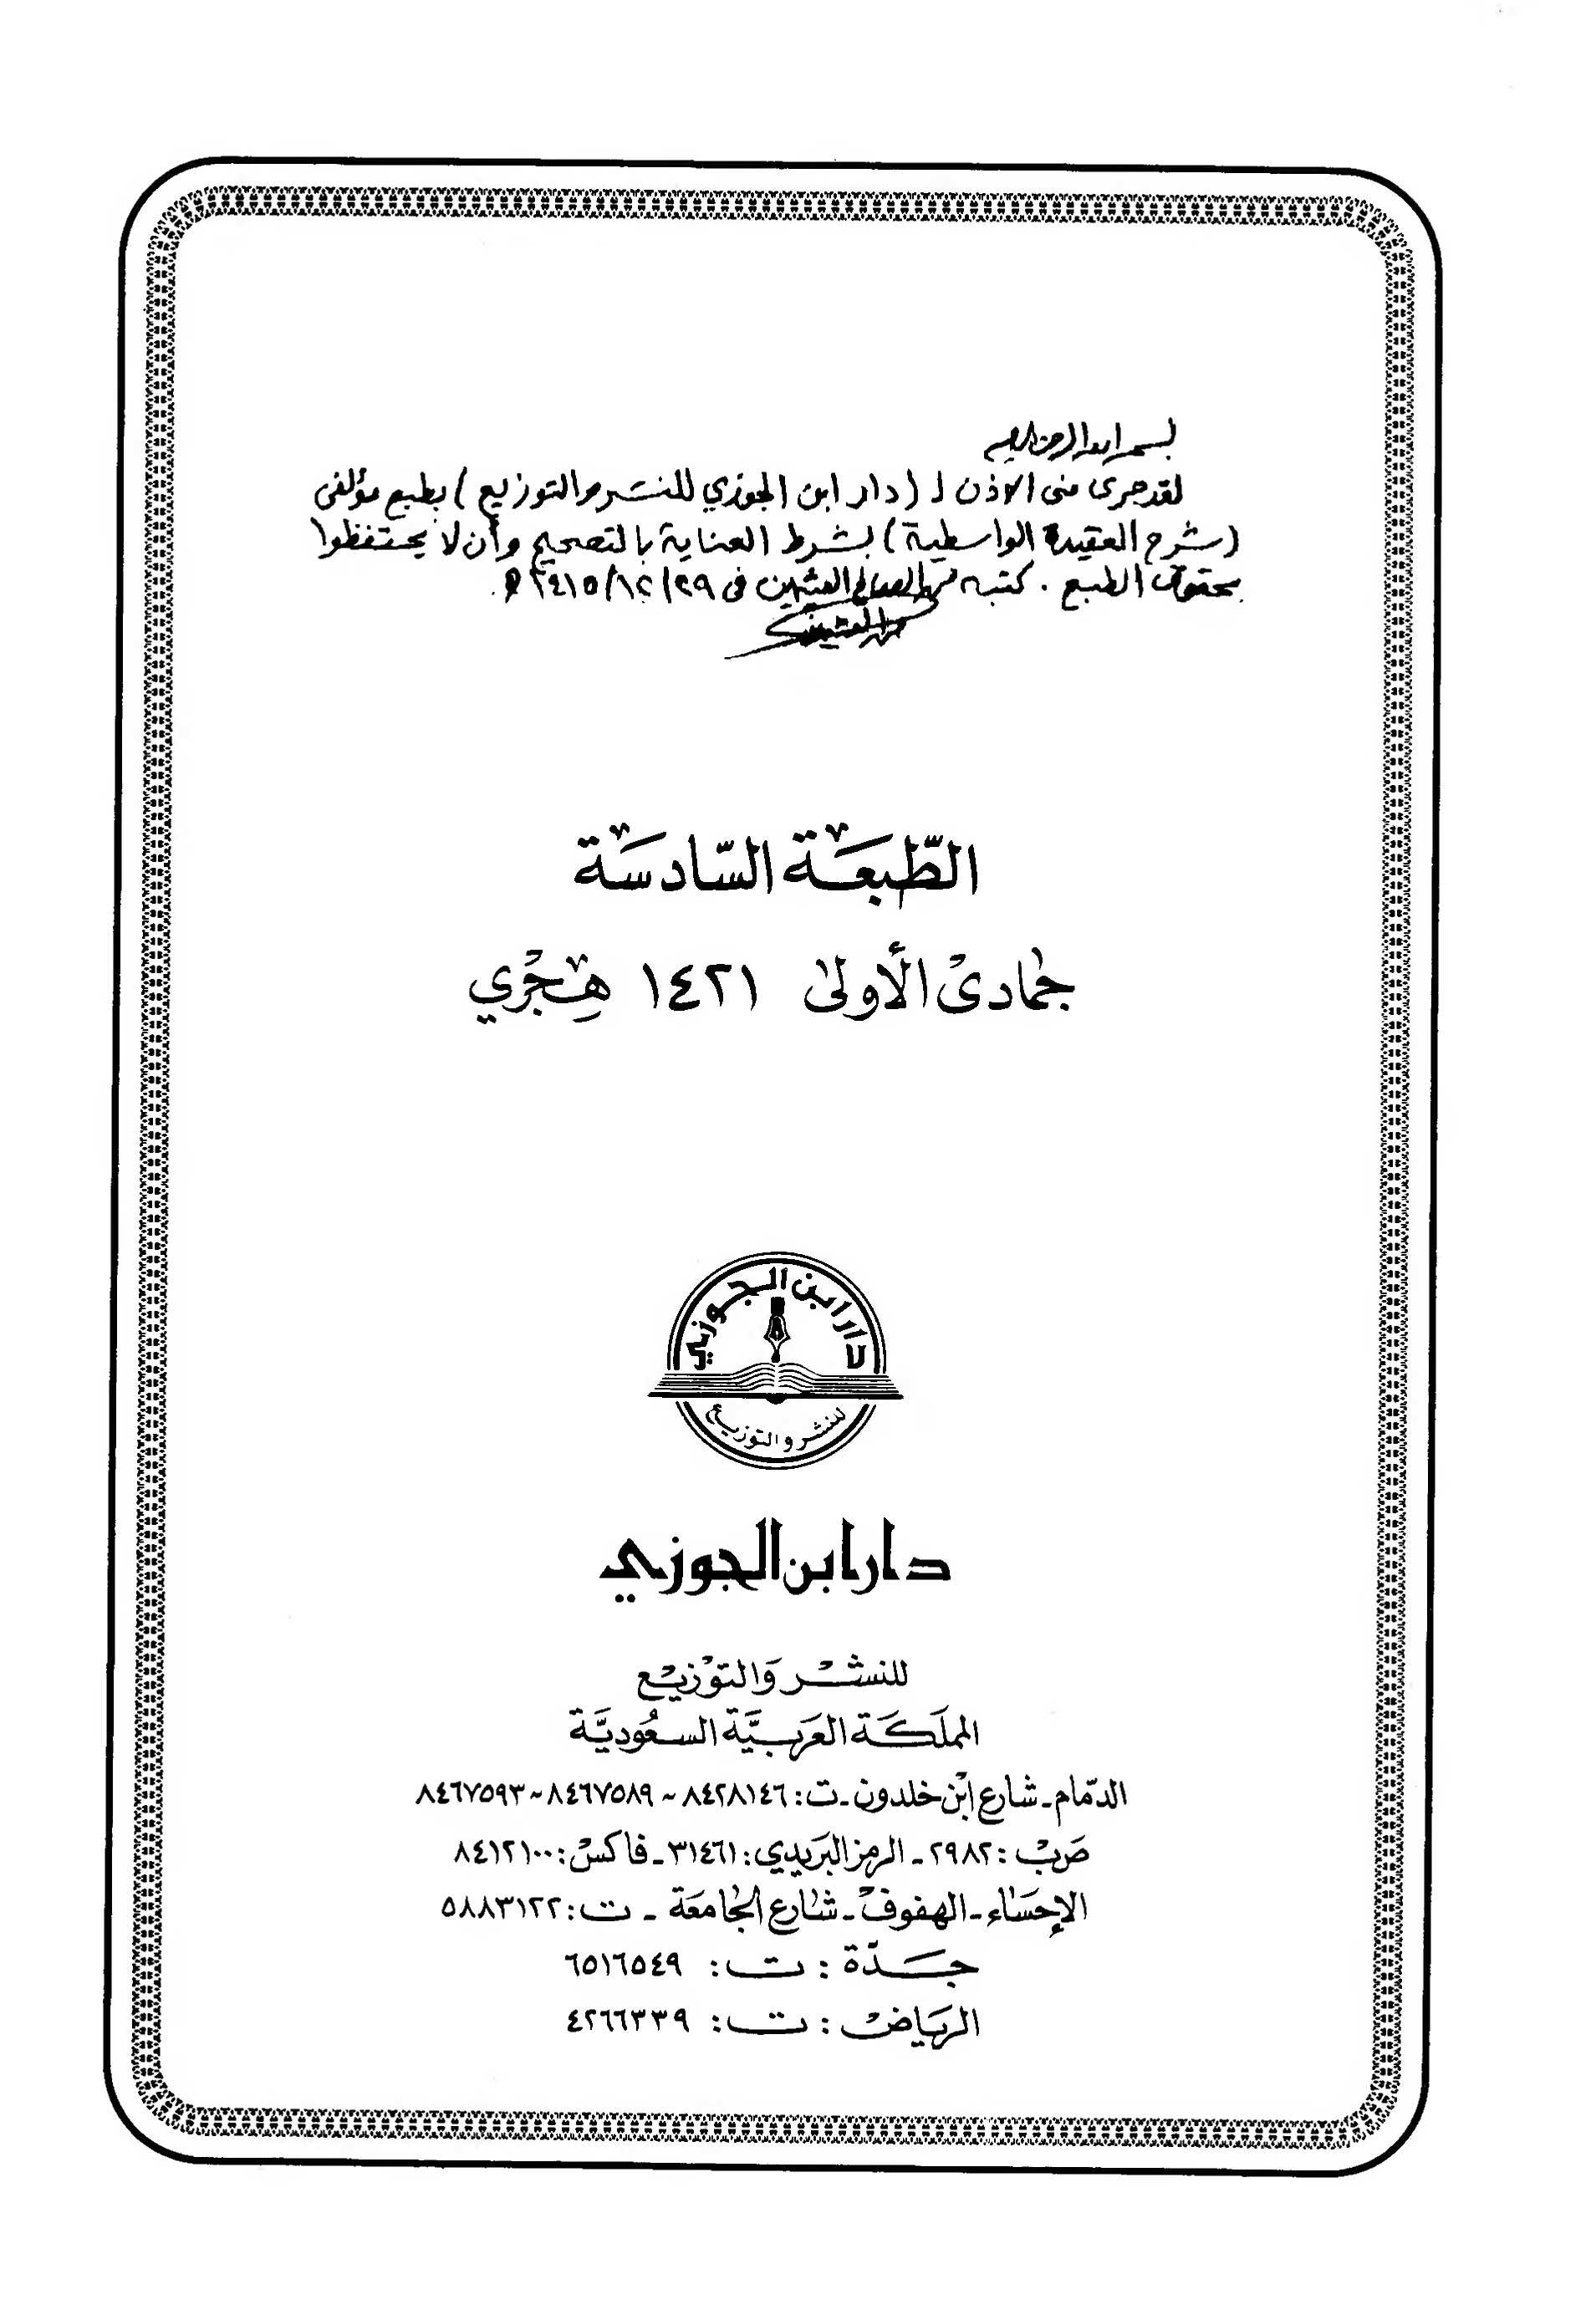 بسم الله الرحمن الرحيم
لقد جرى منى الاذن لـ (دار ابن الجوزي للنشر والتوزيع) بطبع مؤلفى
(شرح العقيدة الواسطية) بشرط العناية بالتصحيح وأن لا يحتفظوا
بحقوق الطبع . كتبه محمد الصالح العثيمين فى ٢٩/١٢/١٤١٥ هـ .
محمد العثيمين
الطّبعَة السّادسَة
جمادى الأولى ١٤٢١ هِجْري
دار ابن الجوزي
للنشر والتوزيع
دار ابن الجوزي
للنشر وَالتوْزيْع
المملَكَة العَربيَّة السعُوديَّة
الدمّام - شارع ابْن خلدون - ت: ٨٤٢٨١٤٦ ~ ٨٤٦٧٥٨٩ ~ ٨٤٦٧٥٩٣
صَ ربْ : ٢٩٨٢ - الرمز البَريدي: ٣١٤٦١ - فاكسْ: ٨٤١٢١٠٠
الإحسَاء - الهفوفْ - شارع الجَامعَة - ت: ٥٨٨٣١٢٢
جَدّة : ت: ٦٥١٦٥٤٩
الريَاضْ : ت: ٤٢٦٦٣٣٩